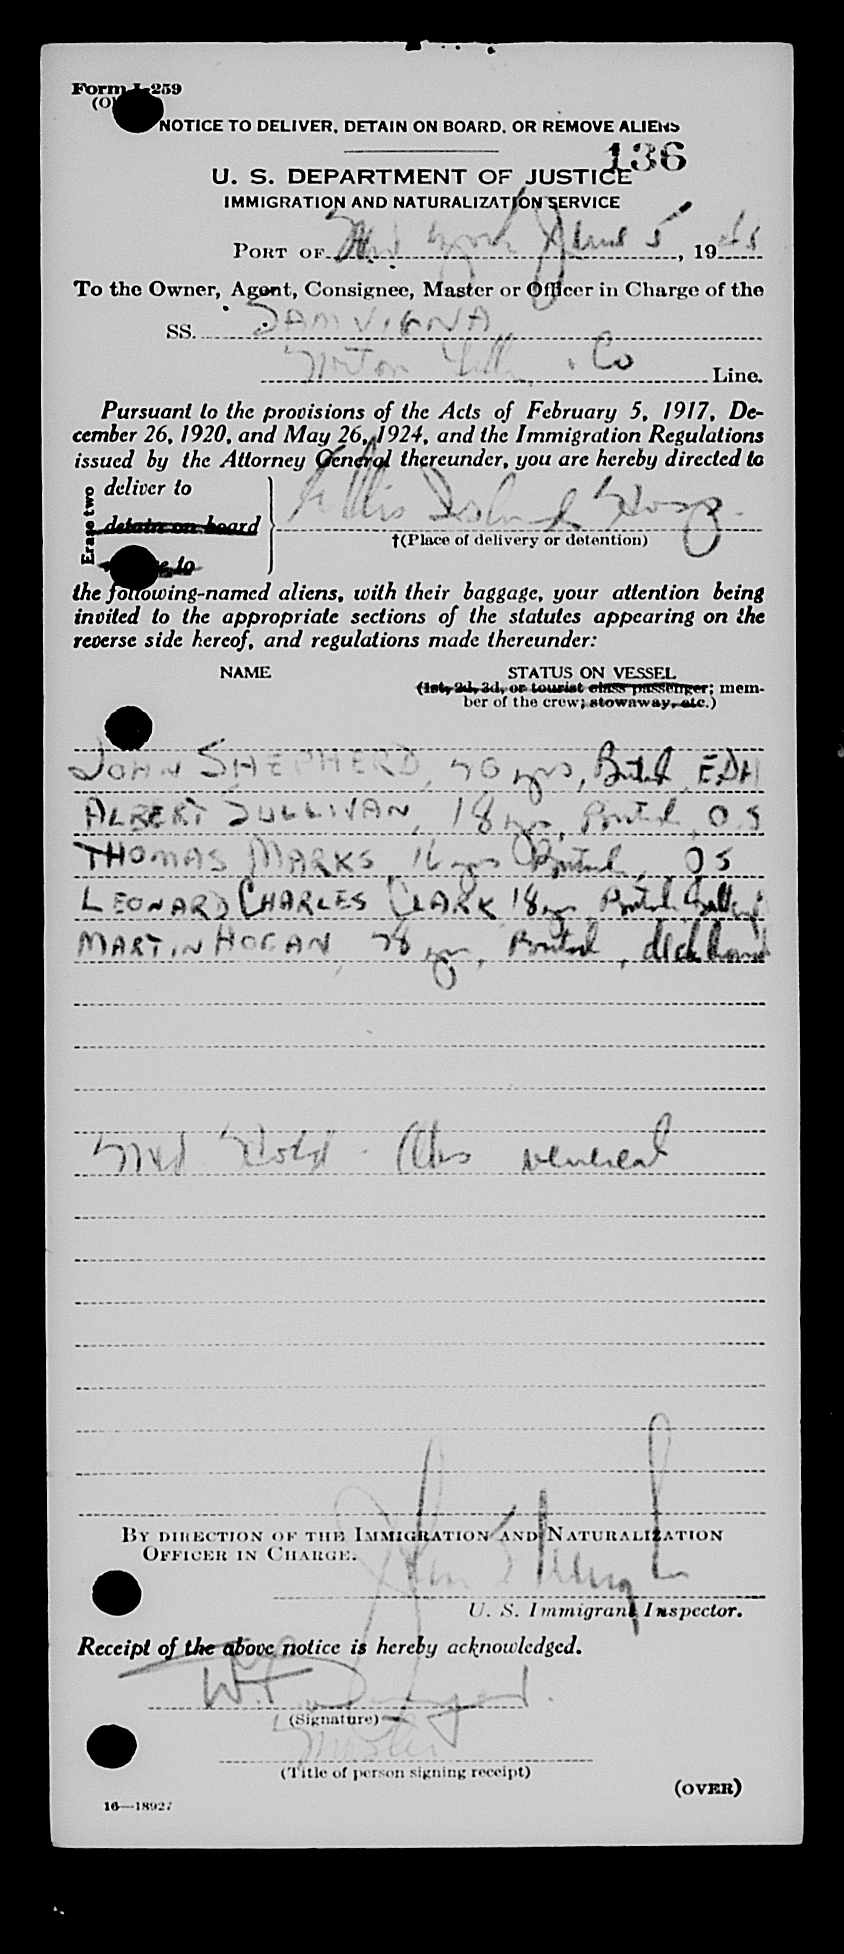 Form I-259
NOTICE TO DELIVER, DETAIN ON BOARD, OR REMOVE ALIENS
136
U. S. DEPARTMENT OF JUSTICE
IMMIGRATION AND NATURALIZATION SERVICE
PORT OF New York June 5, 19 45
To the Owner, Agent, Consignee, Master or Officer in Charge of the
SS. SAMVIGNA
Norton Lilly & Co Line.
Pursuant to the provisions of the Acts of February 5, 1917, De-
cember 26, 1920, and May 26, 1924, and the Immigration Regulations
issued by the Attorney General thereunder, you are hereby directed to
Erase two
deliver to
detain on board
Ellis Island Hosp.
†(Place of delivery or detention)
to
the following-named aliens, with their baggage, your attention being
invited to the appropriate sections of the statutes appearing on the
reverse side hereof, and regulations made thereunder:
NAME STATUS ON VESSEL
(1st, 2d, 3d, or tourist class passenger; mem-
ber of the crew; stowaway, etc.)
JOHN SHEPHERD, 20 yrs, British EDH
ALBERT SULLIVAN, 18 yrs, British, O.S
THOMAS MARKS 16 yrs British, OS
LEONARD CHARLES CLARK 18 yrs British
MARTIN HOGAN 28 yrs, British,
Med Hold - Obs venereal
BY DIRECTION OF THE IMMIGRATION AND NATURALIZATION
OFFICER IN CHARGE.
U. S. Immigrant Inspector.
Receipt of the above notice is hereby acknowledged.
(Signature)
Master
(Title of person signing receipt)
(OVER)
16—18927